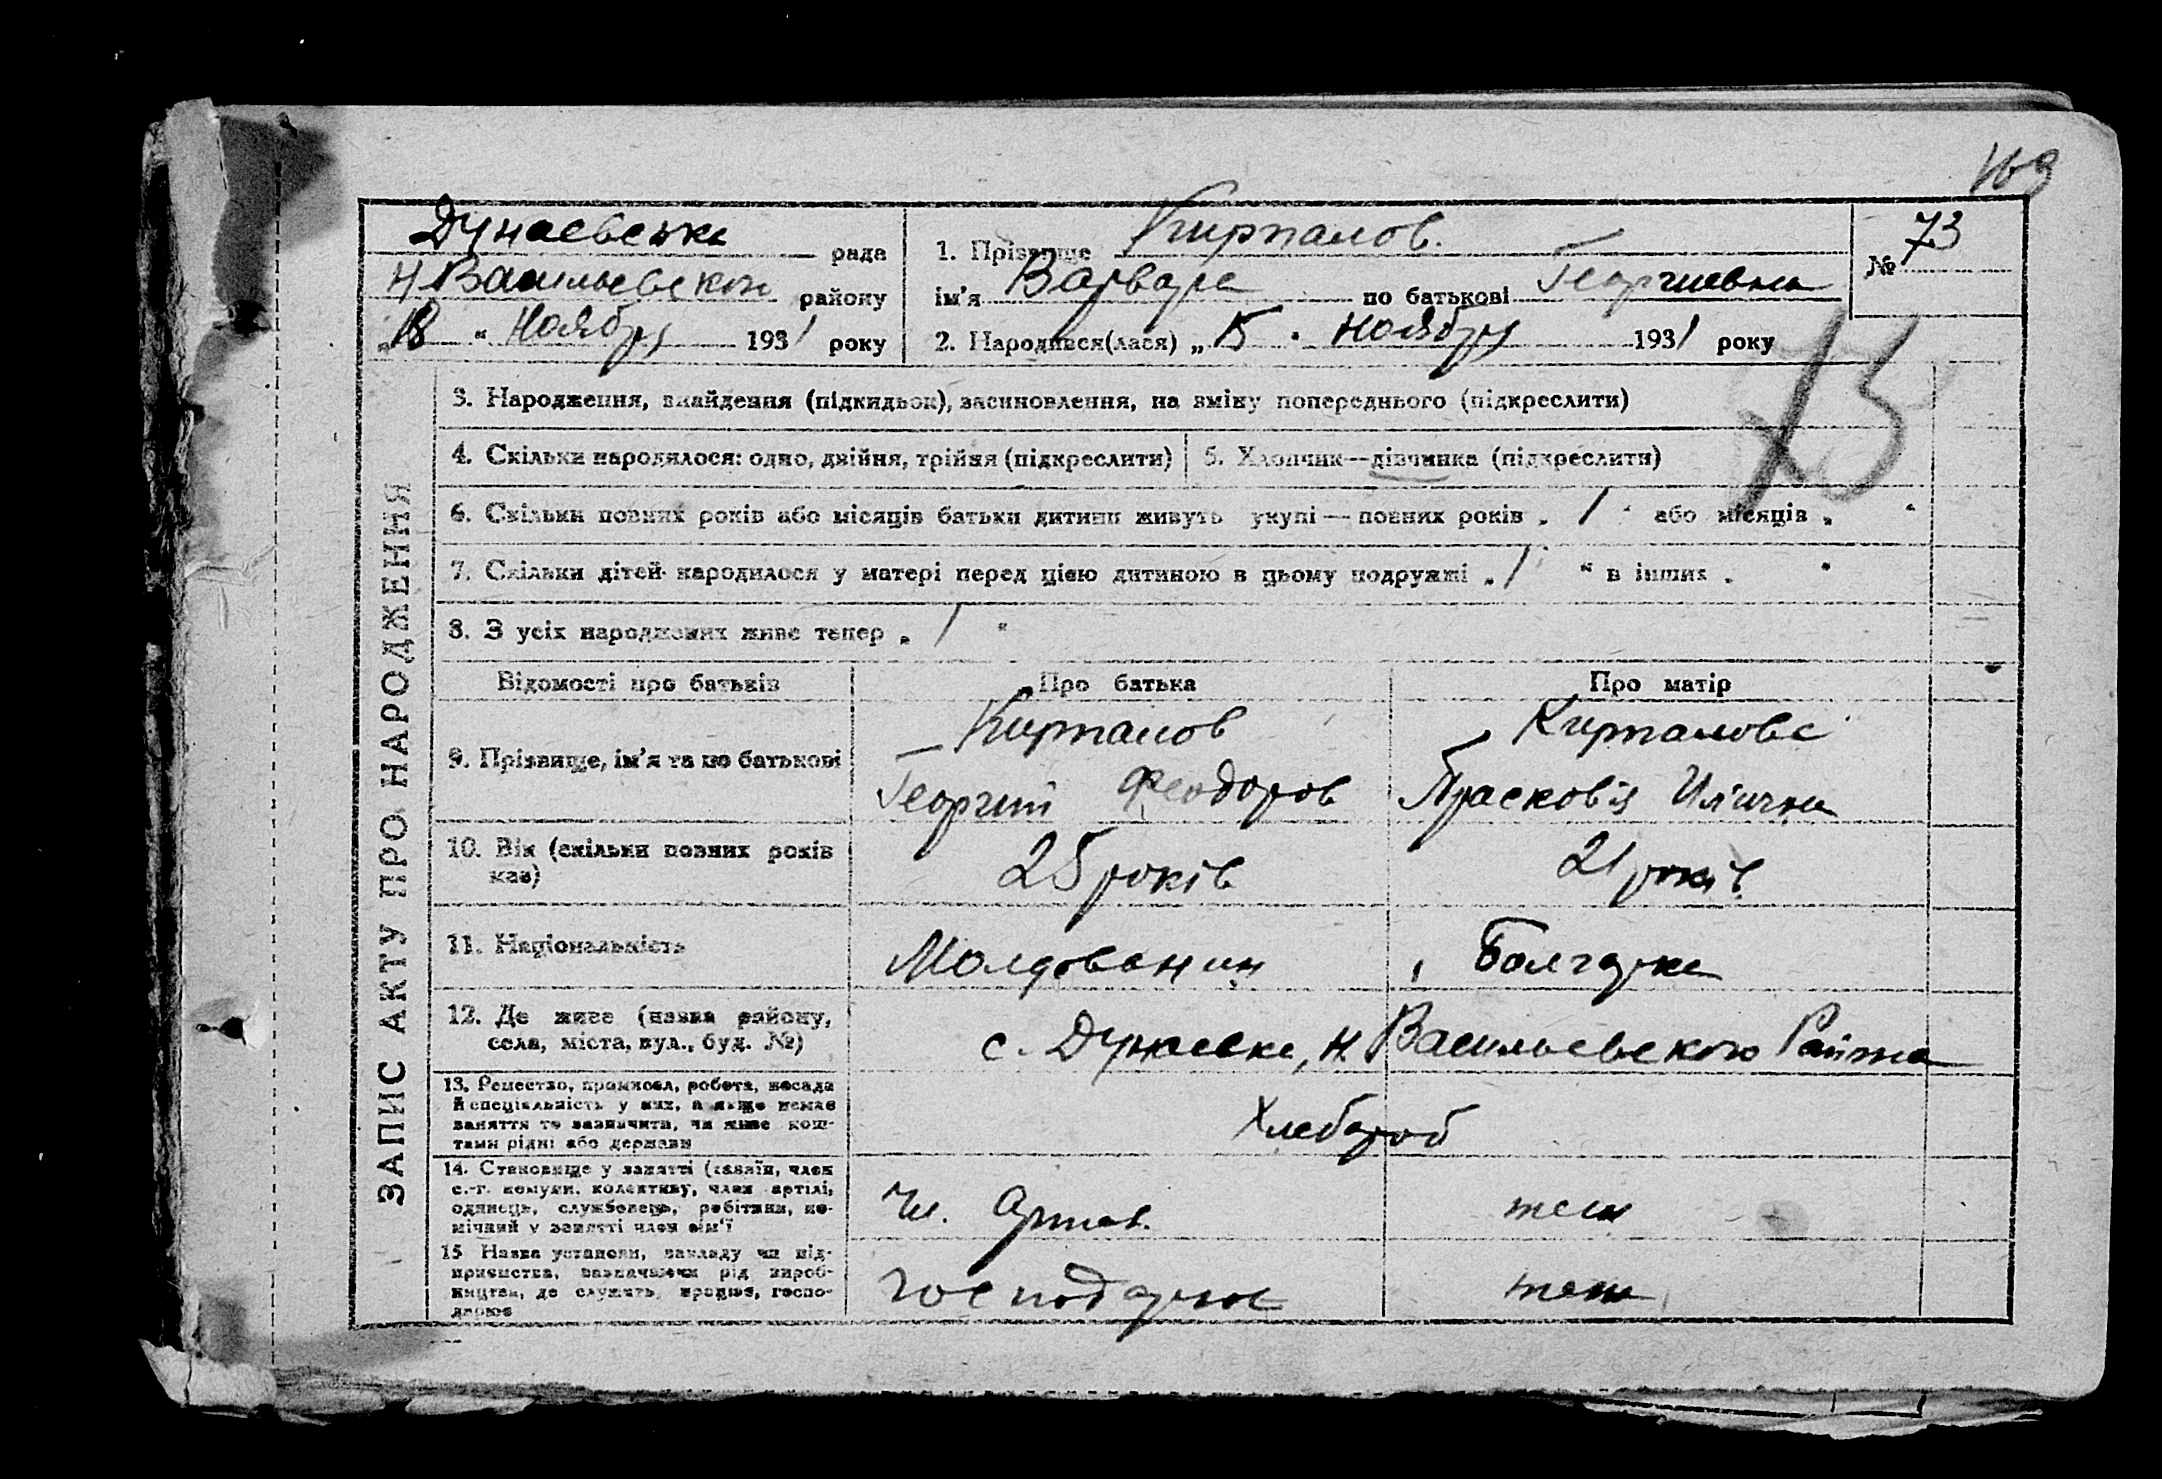 169
Дунаевська рада
Н Васильевского району
„18“ Ноября 1931 року
1. Прізвище Кирпалов.
ім'я Варвара по батькові Георгиевна
2. Народився(лася) „15“ Ноября 1931 року
№ 73
73
ЗАПИС АКТУ ПРО НАРОДЖЕННЯ
3. Народження, знайдення (підкидьок), засиновлення, на зміну попереднього (підкреслити)
4. Скільки народилося: одно, двійня, трійня (підкреслити)
5. Хлопчик—дівчинка (підкреслити)
6. Скільки повних років або місяців батьки дитини живуть укупі — повних років „ 1 “ або місяців „ “
7. Скільки дітей народилося у матері перед цією дитиною в цьому подружжі „ 1 “ в інших „ “
8. З усіх народжених живе тепер „ 1 “
Відомості про батьків Про батька Про матір
9. Прізвище, ім'я та по батькові
Кирпалов
Георгий Феодоров
Кирпалова
Прасковія Илична
10. Вік (скільки повних років має)
25 років
21 років
11. Національність
Молдованин
Болгарка
12. Де живе (назва району,
села, міста, вул., буд. №)
с. Дунаевка, Н. Васильевского Района
13. Ремество, промисел, робота, посада
й спеціяльність у них, а якщо немає
заняття то зазначити, чи живе кош-
тами рідні або держави
Хлебороб
14. Становище у занятті (хазяїн, член
с.-г. комуни, колективу, член артілі,
одинець, службовець, робітник, по-
мічний у занятті член сім'ї
Чл. Артел.
теш
15 Назва установи, закладу чи під-
приємства, зазначаючи рід вироб-
ництва, де служить, працює, госпо-
дарює
господарює
теш